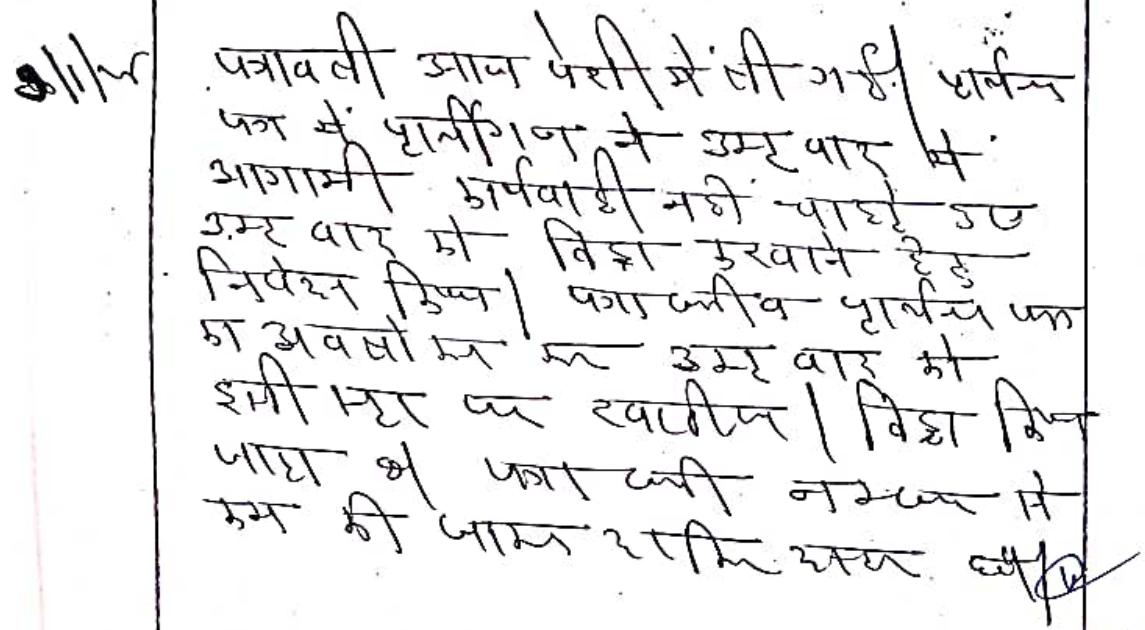 पत्रावली आज पेशी में ली गई। प्रार्थना
पत्र में प्रार्थीगण ने उक्त वाद में
आगामी कार्यवाही नहीं चाहते हुए
उक्त वाद को विड्रा करवाने हेतु
निवेदन किया। पत्रावली व प्रार्थना पत्र
का अवलोकन कर उक्त वाद को
इसी स्तर पर खारीज / विड्रा किया
जाता है। पत्रावली नम्बर से
कम की जाकर दाखिल दफ्तर हो।